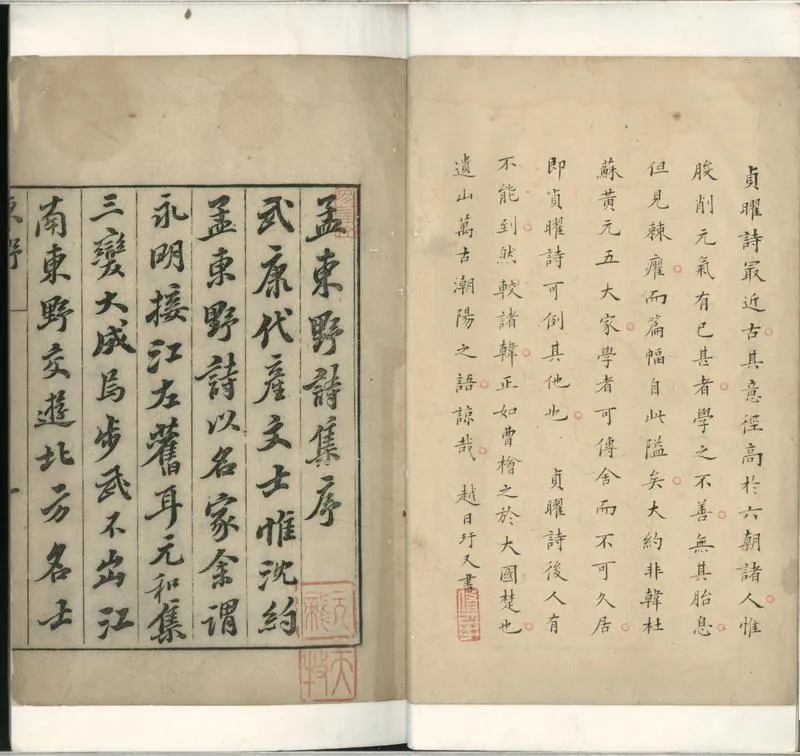 貞曜詩最近古其意徑高於六朝諸人惟
朘削元氣有已甚者學之不善無其胎息
但見棘癯而篇幅自此隘矣大約非韓杜
蘇黃元五大家學者可傳舍而不可久居
即貞曜詩可例其他也 貞曜詩後人有
不能到然較諸韓正如曹檜之於大國楚也
遺山萬古潮陽之語諒哉 越日玗又書
孟東野詩集序
武康代產文士惟沈約
孟東野詩以名家余謂
永明接江左舊耳元和集
三變大成焉步武不出江
南東野交遊北方名士
東野